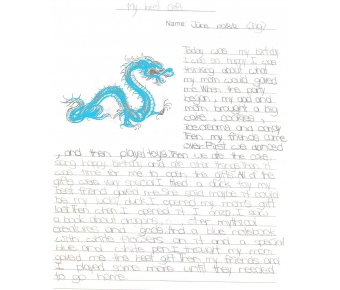 My best gift
Name: June
Today was my birthday
I was so happy I was
thinking about what
my mom would gaved
me. When the party
began, my dad and
mom brought a big
cake, cookies,
icecreams and candy
Then my friends came
over. First we danced
, and then played toys. Then we ate the cake
sang happy birthday and ate other things. Then it
was time for me to open the gifts. All of the
gifts was very good. I liked a duck toy my
best friend gaved me. She said maybe it could
be my lucky duck. I opened my mom's gift
last. Then when I opened it I saw
a book about dragons, other mythical
creatures and gods and a blue notebook
with white flowers on it and a special
blue and white pen. I thought my mom
gaved me the best gift. Then my friends and
I played some more until they needed
to go home.